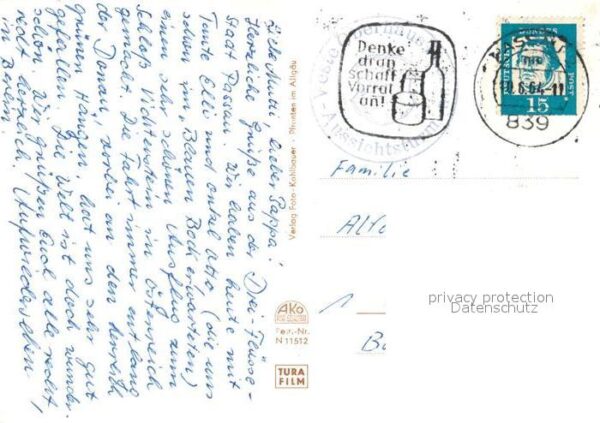 Liebe Mutti, lieber Pappa!
Herzl. Grüße aus der Drei-Flüsse-
Stadt Passau. Wir haben heute mit
Tante Elli und Onkel Otto (die uns
schon am Blauen Bock erwarteten)
einen sehr schönen Ausflug zum
Schloß Lichtenstein in Österreich
gemacht. Die Fahrt immer entlang
der Donau, vorbei an den herrlich
grünen Hängen, hat uns sehr gut
gefallen. Die Welt ist doch wunder-
schön. Wir grüßen Euch alle recht,
recht herzlich (Aufwiedersehen
in Berlin.
Verlag Foto-Kohlbauer · Pfronten im Allgäu
AKo
Fest.-Nr.
N 11512
TURA
FILM
Aussichtsturm
Denke
dran
schaff
Vorrat
an!
PASSAU
6.64-11
839
DEUTSCHE
POST
15
Familie
privacy protection
Datenschutz